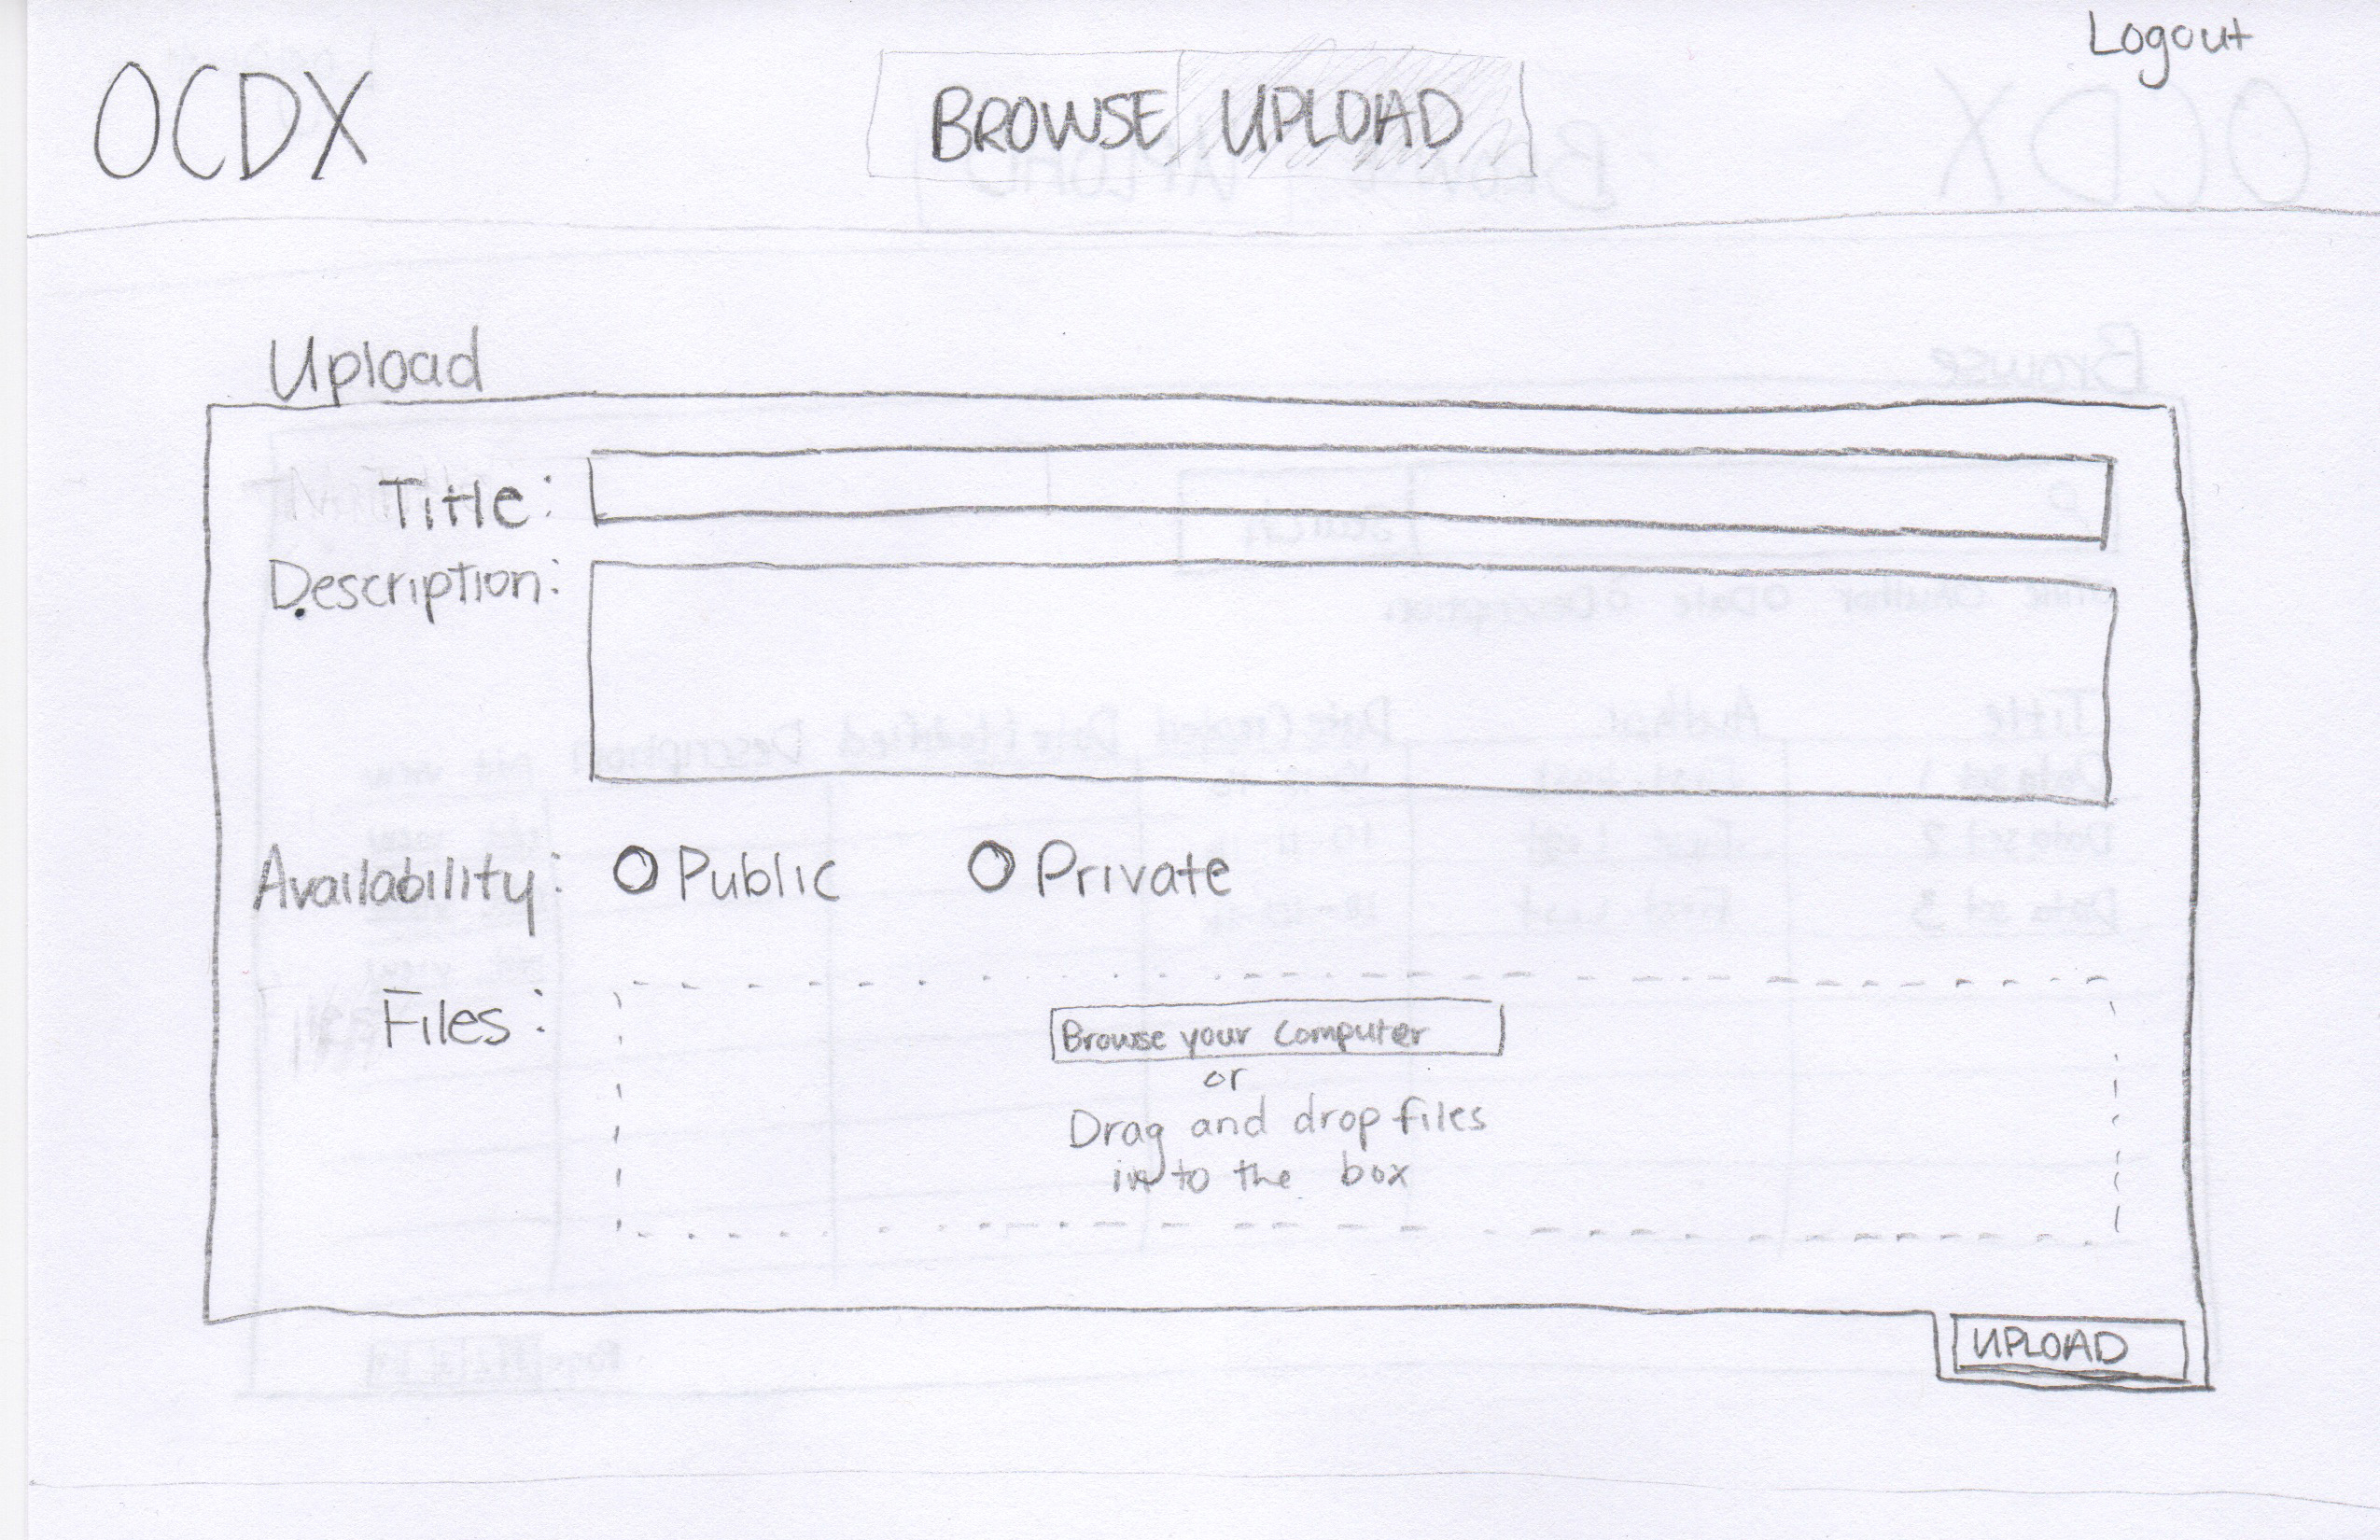 Logout
OCDX
BROWSE UPLOAD
Upload
Title:
Description:
Availability: Public Private
Files:
Browse your computer
or
Drag and drop files
into the box
UPLOAD